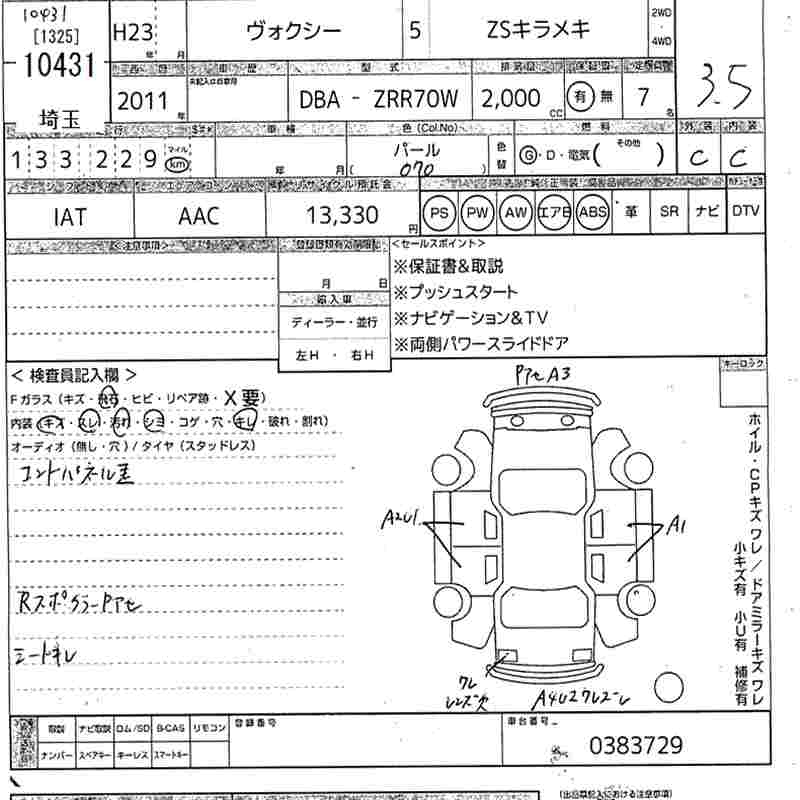 10431
[1325]
10431
埼玉
H23 年 月
ヴォクシー
5
ZSキラメキ
2WD
4WD
3.5
車歴 型式
2011 年
DBA - ZRR70W
2,000 cc
有 無
7 名
外装 内装
C C
車検 色(Col.No) 燃料
133,229 マイル km
年 月
パール
( 070 )
色替
G・D・電気( その他 )
IAT
AAC
13,330 円
PS PW AW エアB ABS 革 SR ナビ DTV
<注意事項>
月 日
輸入車
ディーラー・並行
左H ・ 右H
<セールスポイント>
※保証書&取説
※プッシュスタート
※ナビゲーション&TV
※両側パワースライドドア
キーロック
< 検査員記入欄 >
Fガラス(キズ・飛石・ヒビ・リペア跡・X要)
内装(キズ・スレ・汚れ・シミ・コゲ・穴・キレ・破れ・割れ)
オーディオ(無し・穴)/タイヤ(スタッドレス)
Rスポイラー Pアセ
シートキレ
Pアセ A3
A2U1
A1
ワレ
レンズ欠
ホイル・CPキズ ワレ/ドアミラーキズ ワレ
小キズ有 小U有 補修有
取説 ナビ取説 ロム/SD B-CAS リモコン
ナンバー スペアキー キーレス スマートキー
登録番号
車台番号
0383729
(出品票記入における注意事項)